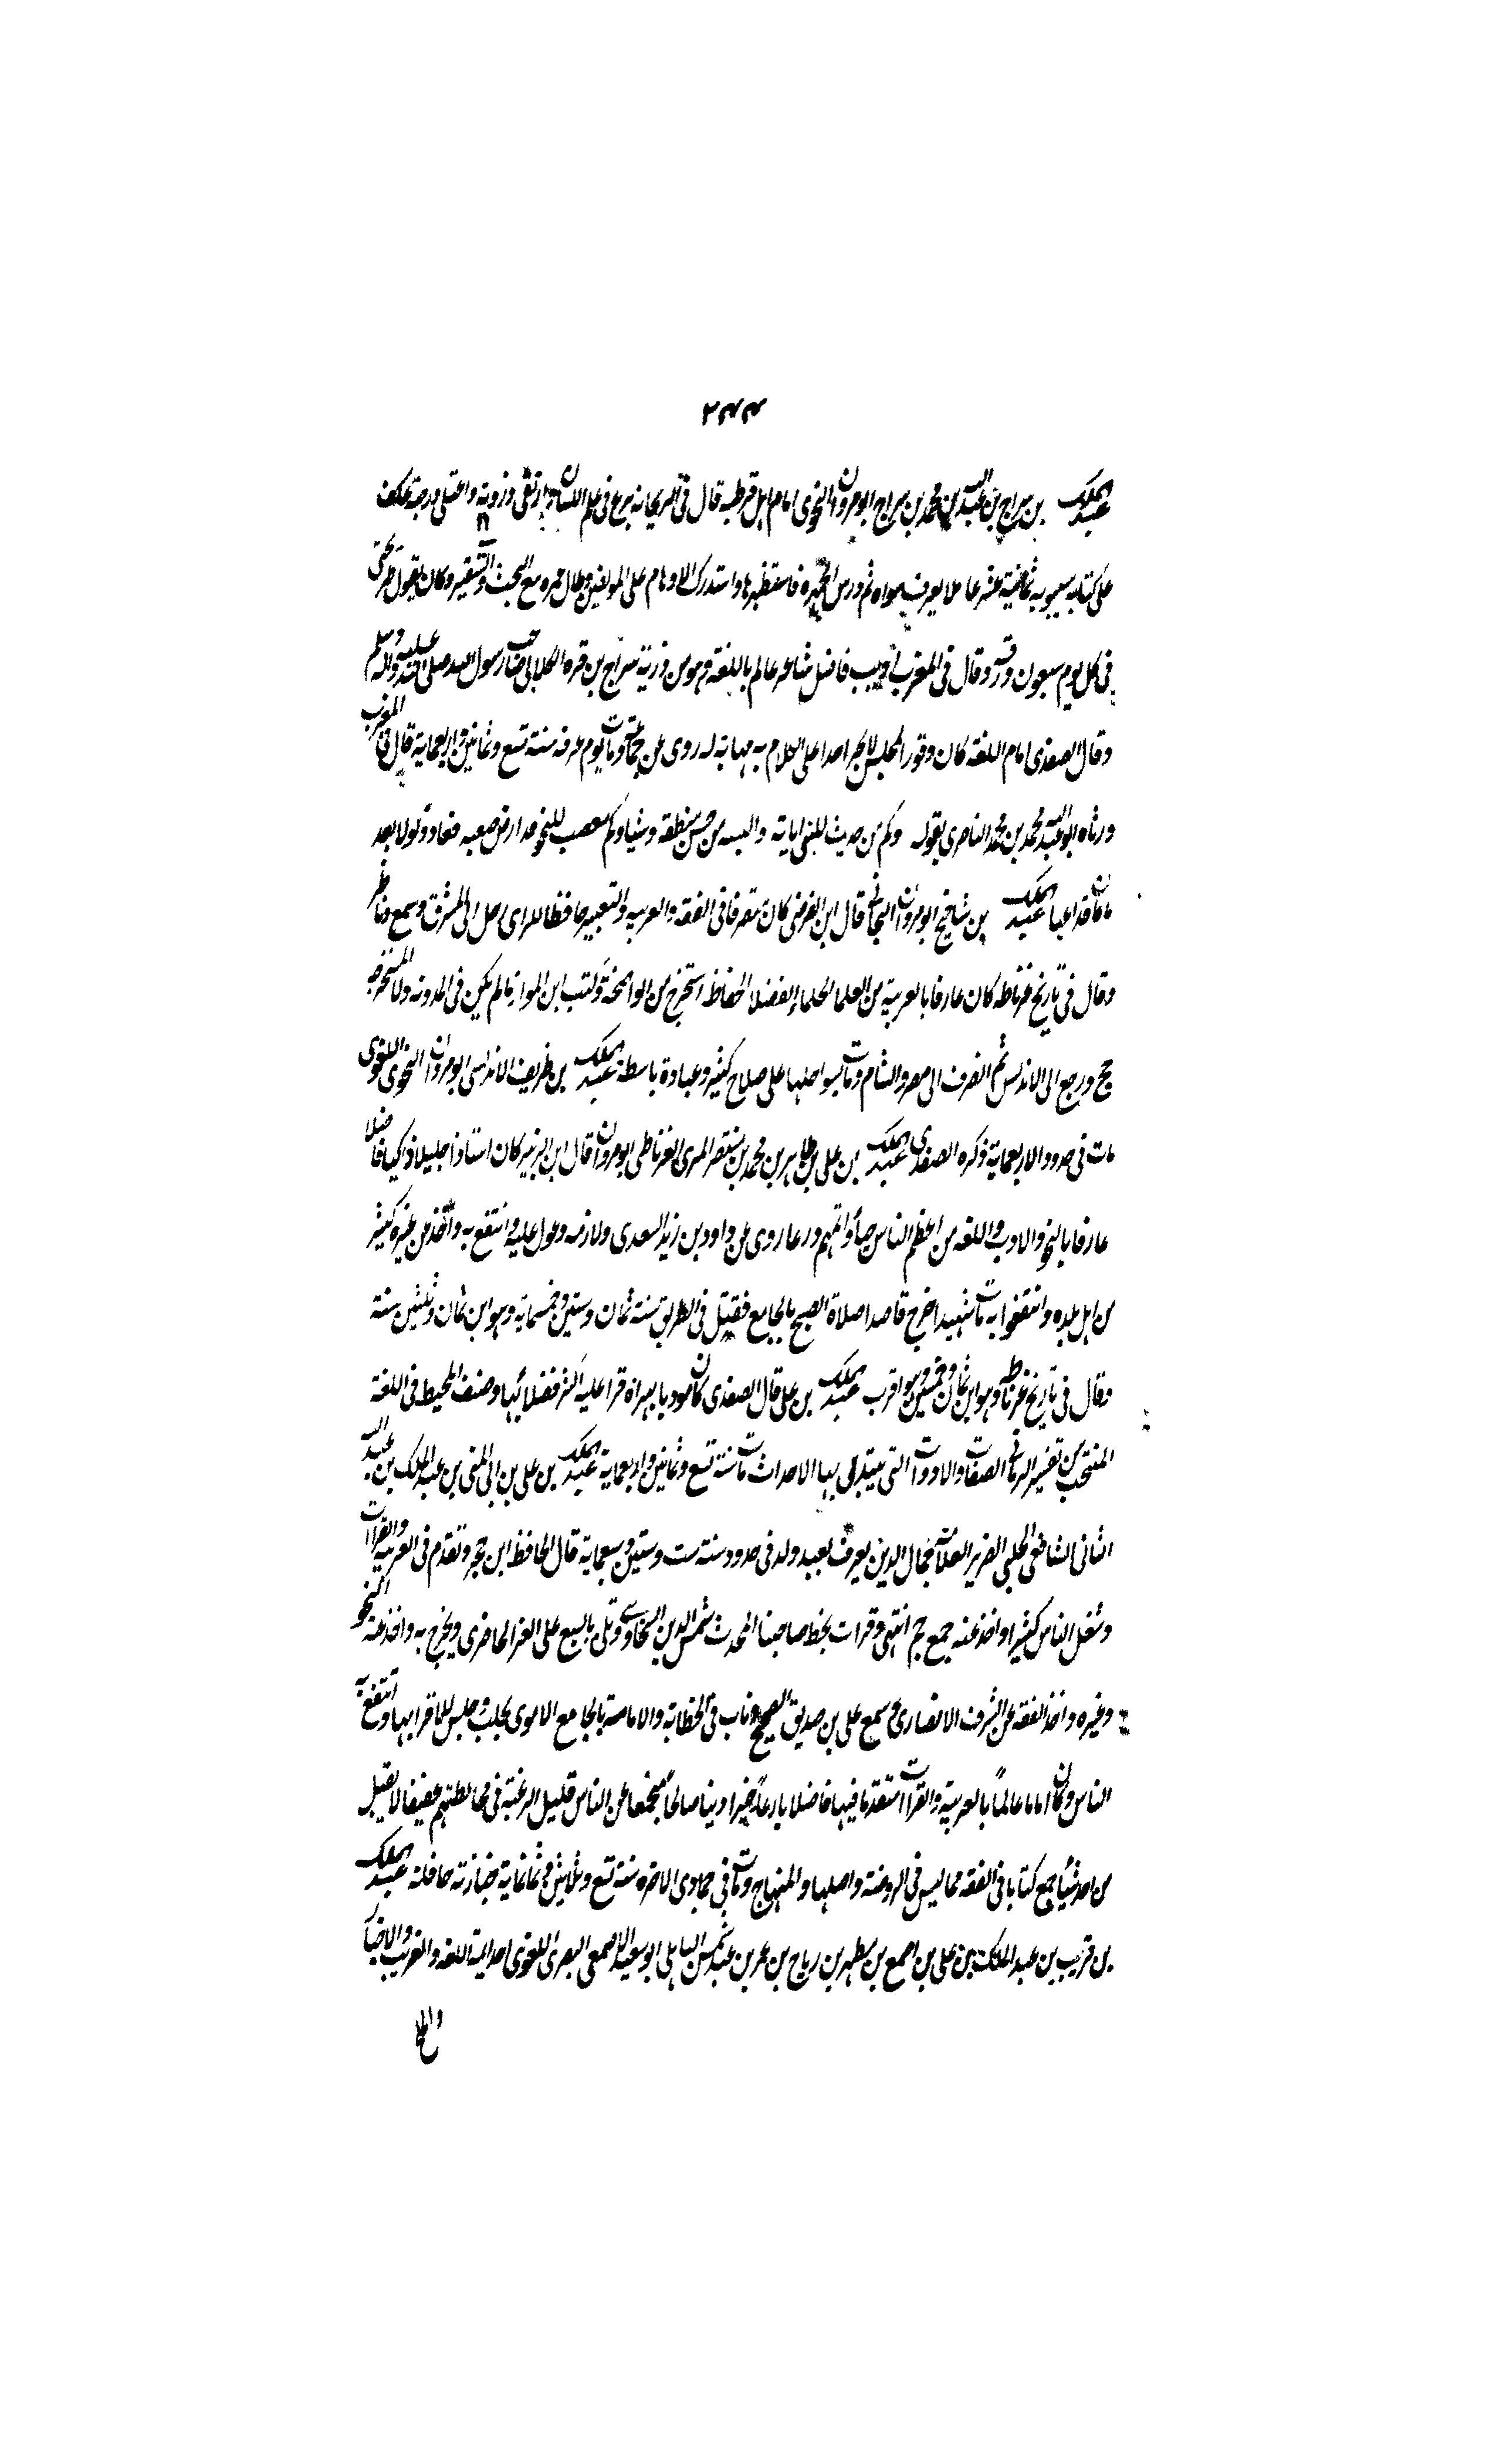 ٢٤٤
عبد الملك بن سراج بن عبد الله بن محمد بن سراج ابو مروان النحوى امام اهل قرطبة قال فى الريحانة برع فى علم اللسان وارتقى ذروته واعتلى درجته عكف
على كتاب سيبويه ثمانية عشر عاما لا يعرف سواه ثم درس الجمهرة فاستظهرها واستدرك الاوهام على المولفين وطال عمره مع البحث والتنقير وكان يقول
فى كل يوم سبعون ورقة وقال فى المغرب اديب فاضل شاعر عالم باللغة وهو من ذرية سراج بن قرة الكلابى صاحب رسول الله صلى الله عليه واله وسلم
وقال الصفدى امام اللغة كان وقور المجلس لا يجسر احد على الكلام به مهابة له روى عن جماعة ومات يوم عرفة سنة تسع وثمانين واربعماية قال فى المغرب
ورثاه ابو عبد الله محمد بن محمد الناصرى بقوله وكم من حديث للنبى ابانه والبسه من حسن منطقه وشيا وكم مصعب للنحو قد راض صعبه فعاد ذلولا بعد
ما كان قد اعيا عبد الملك بن شاختج ابو مروان البجانى قال ابن الفرضى كان متصرفا فى الفقه والعربية والتعبير حافظا للراى رحل الى المشرق وسمع وناظر
وقال فى تاريخ غرناطه كان عارفا بالعربية من العلما الحلماء الفضلا الحفاظ استخرج من الواضحة وكتب ابن المواز ما لم يكن فى المدونة ولا المستخرجة
حج ورجع الى الاندلس ثم انصرف الى مصر والشام ومات بسواحلها على صلاح كثير وعبادة باسطة عبد الملك بن طريف الاندلسى ابو مروان النحوى اللغوى
مات فى حدود الاربعماية ذكره الصفدى عبد الملك بن على بن طاهر بن محمد بن منتصر المرى الغرناطى ابو مروان قال ابن الزبير كان استاذا جليلا ذكيا فاضلا
عارفا بالنحو والادب واللغه من اعظم الناس حياء واتمهم ورعا روى عن داود بن زيد السعدى ولازمه وعول عليه وانتفع به واخذ عن غيره كثير
من اهل بلده وانتفعوا به مات شهيدا خرج قاصدا صلاة الصبح بالجامع فقتل فى الطريق سنة ثمان وستين وخمسماية وهو ابن ثمان وثلثين سنة
وقال فى تاريخ غرناطه وهو ابن ثمان وخمسين وهو اقرب عبد الملك بن على قال الصفدى كان مودبا بهراة قرا عليه اكثر فضلائها وصنف المحيط فى اللغة
المنتخب من تفسير الرمانى الصفات والادوات التى يبتدى بها الاحداث مات سنة تسع وثمانين واربعماية عبد الملك بن على بن ابى المنى بن عبد الملك بن عبد الله
الثانى الشافعى الحلبى الضرير العلامة جمال الدين يعرف بعبيد ولد فى حدود سنة ست وستين وسبعماية قال الحافظ ابن حجر وتقدم فى العربية والقراات
وشغل الناس كثيرا واخذ عنه جمع جم انتهى وقرات بخط صاحبنا المحدث شمس الدين السخاوى وتلى بالسبع على العز الحاضرى وتخرج به واخذ عنه النحو
وغيره واخذ الفقه عن الشرف الانصارى وسمع على بن صديق الصحيح وناب فى الخطابة والامامة بالجامع الاموى بحلب وجلس للاقرا بها وانتفع به
الناس وكان اماما عالمًا بالعربية والقراات متقدما فيها فاضلا بارعًا خيرا دينا صالحًا منجمعا عن الناس قليل الرغبة فى مخالطتهم عفيفا لا يقبل
من احد شيا جمع كتابا فى الفقه مما ليس فى الروضة واصلها والمنهاج ومات فى جمادى الاخرة سنة تسع وثلاثين وثمانماية جنازته حافلة عبد الملك
بن قريب بن عبد الملك بن على بن اصمع بن مطهر بن رياح بن عمر بن عبد شمس الباهلى ابو سعيد الاصمعى البصرى اللغوى احد ايمة اللغة والغريب والاخبار